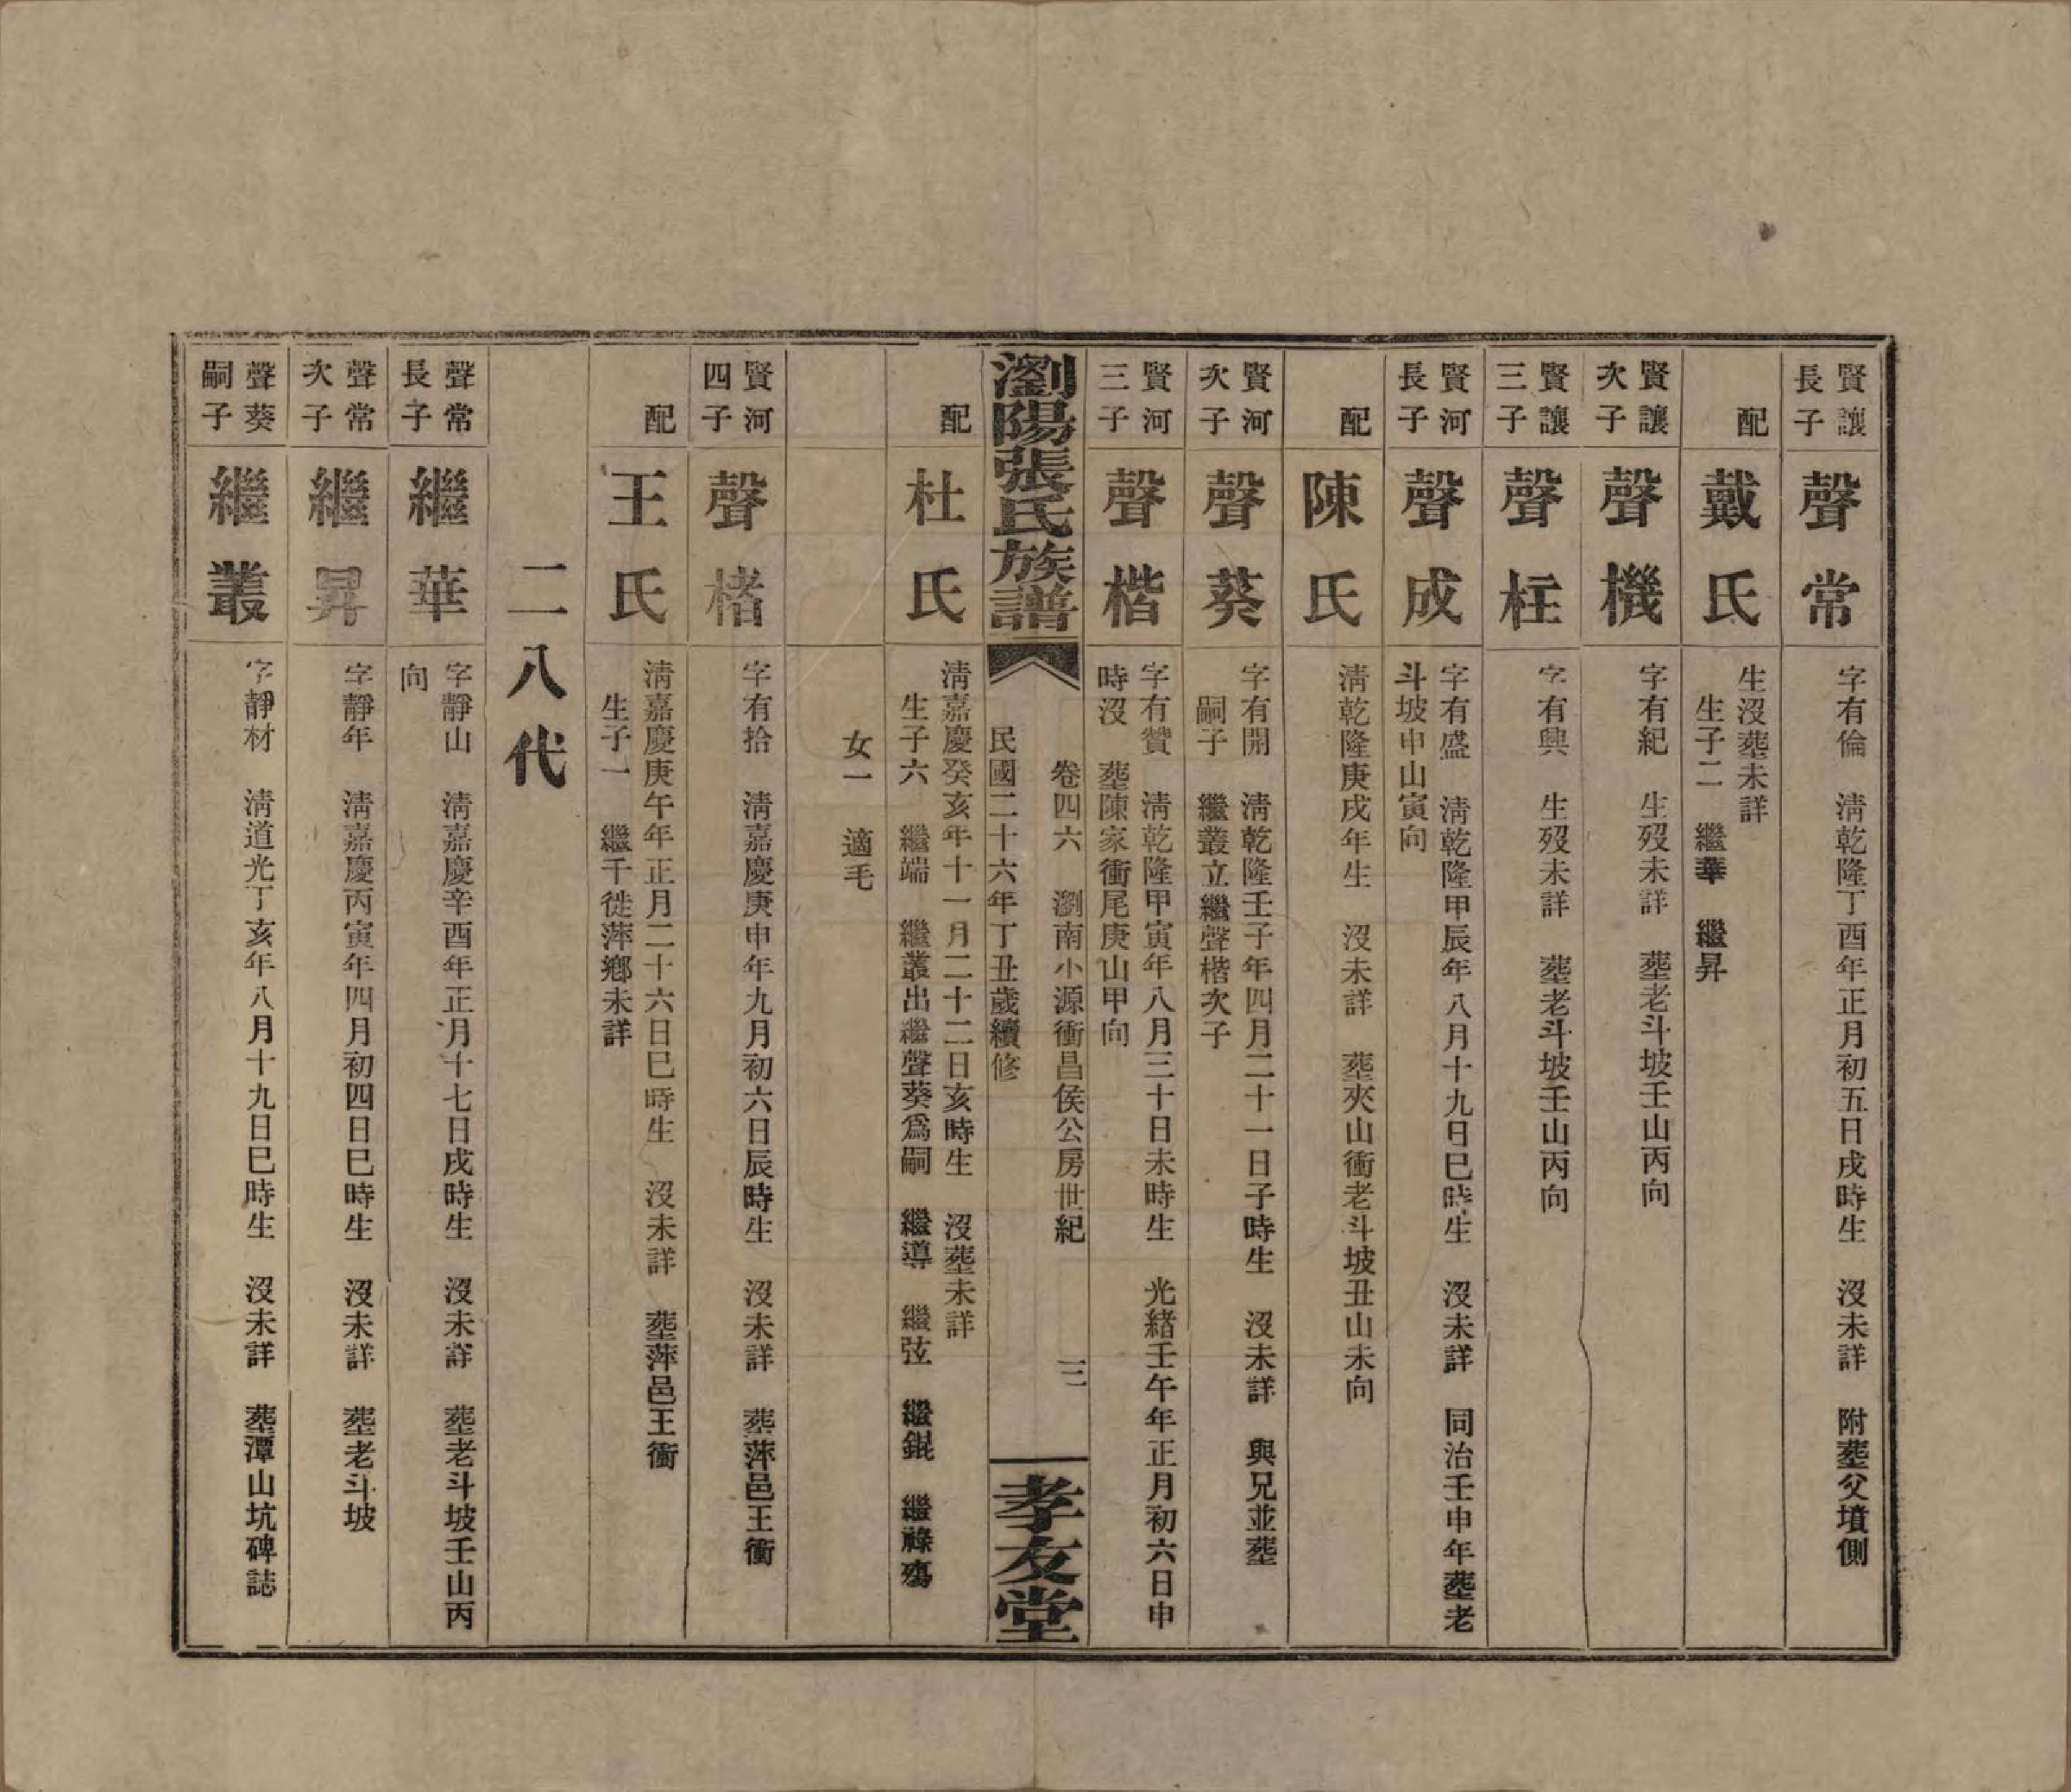 賢讓
長子
聲常
字有倫　淸乾隆丁酉年正月初五日戌時生　沒未詳　附葬父墳側
配
戴氏
生沒葬未詳
生子二　繼華　繼昇
賢讓
次子
聲機
字有紀　生歿未詳　葬老斗坡壬山丙向
賢讓
三子
聲柱
字有興　生歿未詳　葬老斗坡壬山丙向
賢河
長子
聲成
字有盛　淸乾隆甲辰年八月十九日巳時生　沒未詳　同治壬申年葬老
斗坡申山寅向
配
陳氏
淸乾隆庚戌年生　沒未詳　葬夾山衝老斗坡丑山未向
賢河
次子
聲葵
字有開　淸乾隆壬子年四月二十一日子時生　沒未詳　與兄並葬
嗣子　繼叢立繼聲楷次子
賢河
三子
聲楷
字有贊　淸乾隆甲寅年八月三十日未時生　光緒壬午年正月初六日申
時沒　葬陳家衝尾庚山甲向
瀏陽張氏族譜
卷四六　瀏南小源衝昌侯公房世紀　三
民國二十六年丁丑歲續修
孝友堂
配
杜氏
淸嘉慶癸亥年十一月二十二日亥時生　沒葬未詳
生子六　繼端　繼叢出繼聲葵爲嗣　繼導　繼弦　繼錕　繼祿殤
女一　適毛
賢河
四子
聲楮
字有拾　淸嘉慶庚申年九月初六日辰時生　沒未詳　葬萍邑王衝
配
王氏
淸嘉慶庚午年正月二十六日巳時生　沒未詳　葬萍邑王衝
生子一　繼千徙萍鄉未詳
二八代
聲常
長子
繼華
字靜山　淸嘉慶辛酉年正月十七日戌時生　沒未詳　葬老斗坡壬山丙
向
聲常
次子
繼昇
字靜年　淸嘉慶丙寅年四月初四日巳時生　沒未詳　葬老斗坡
聲葵
嗣子
繼叢
字靜材　淸道光丁亥年八月十九日巳時生　沒未詳　葬潭山坑碑誌